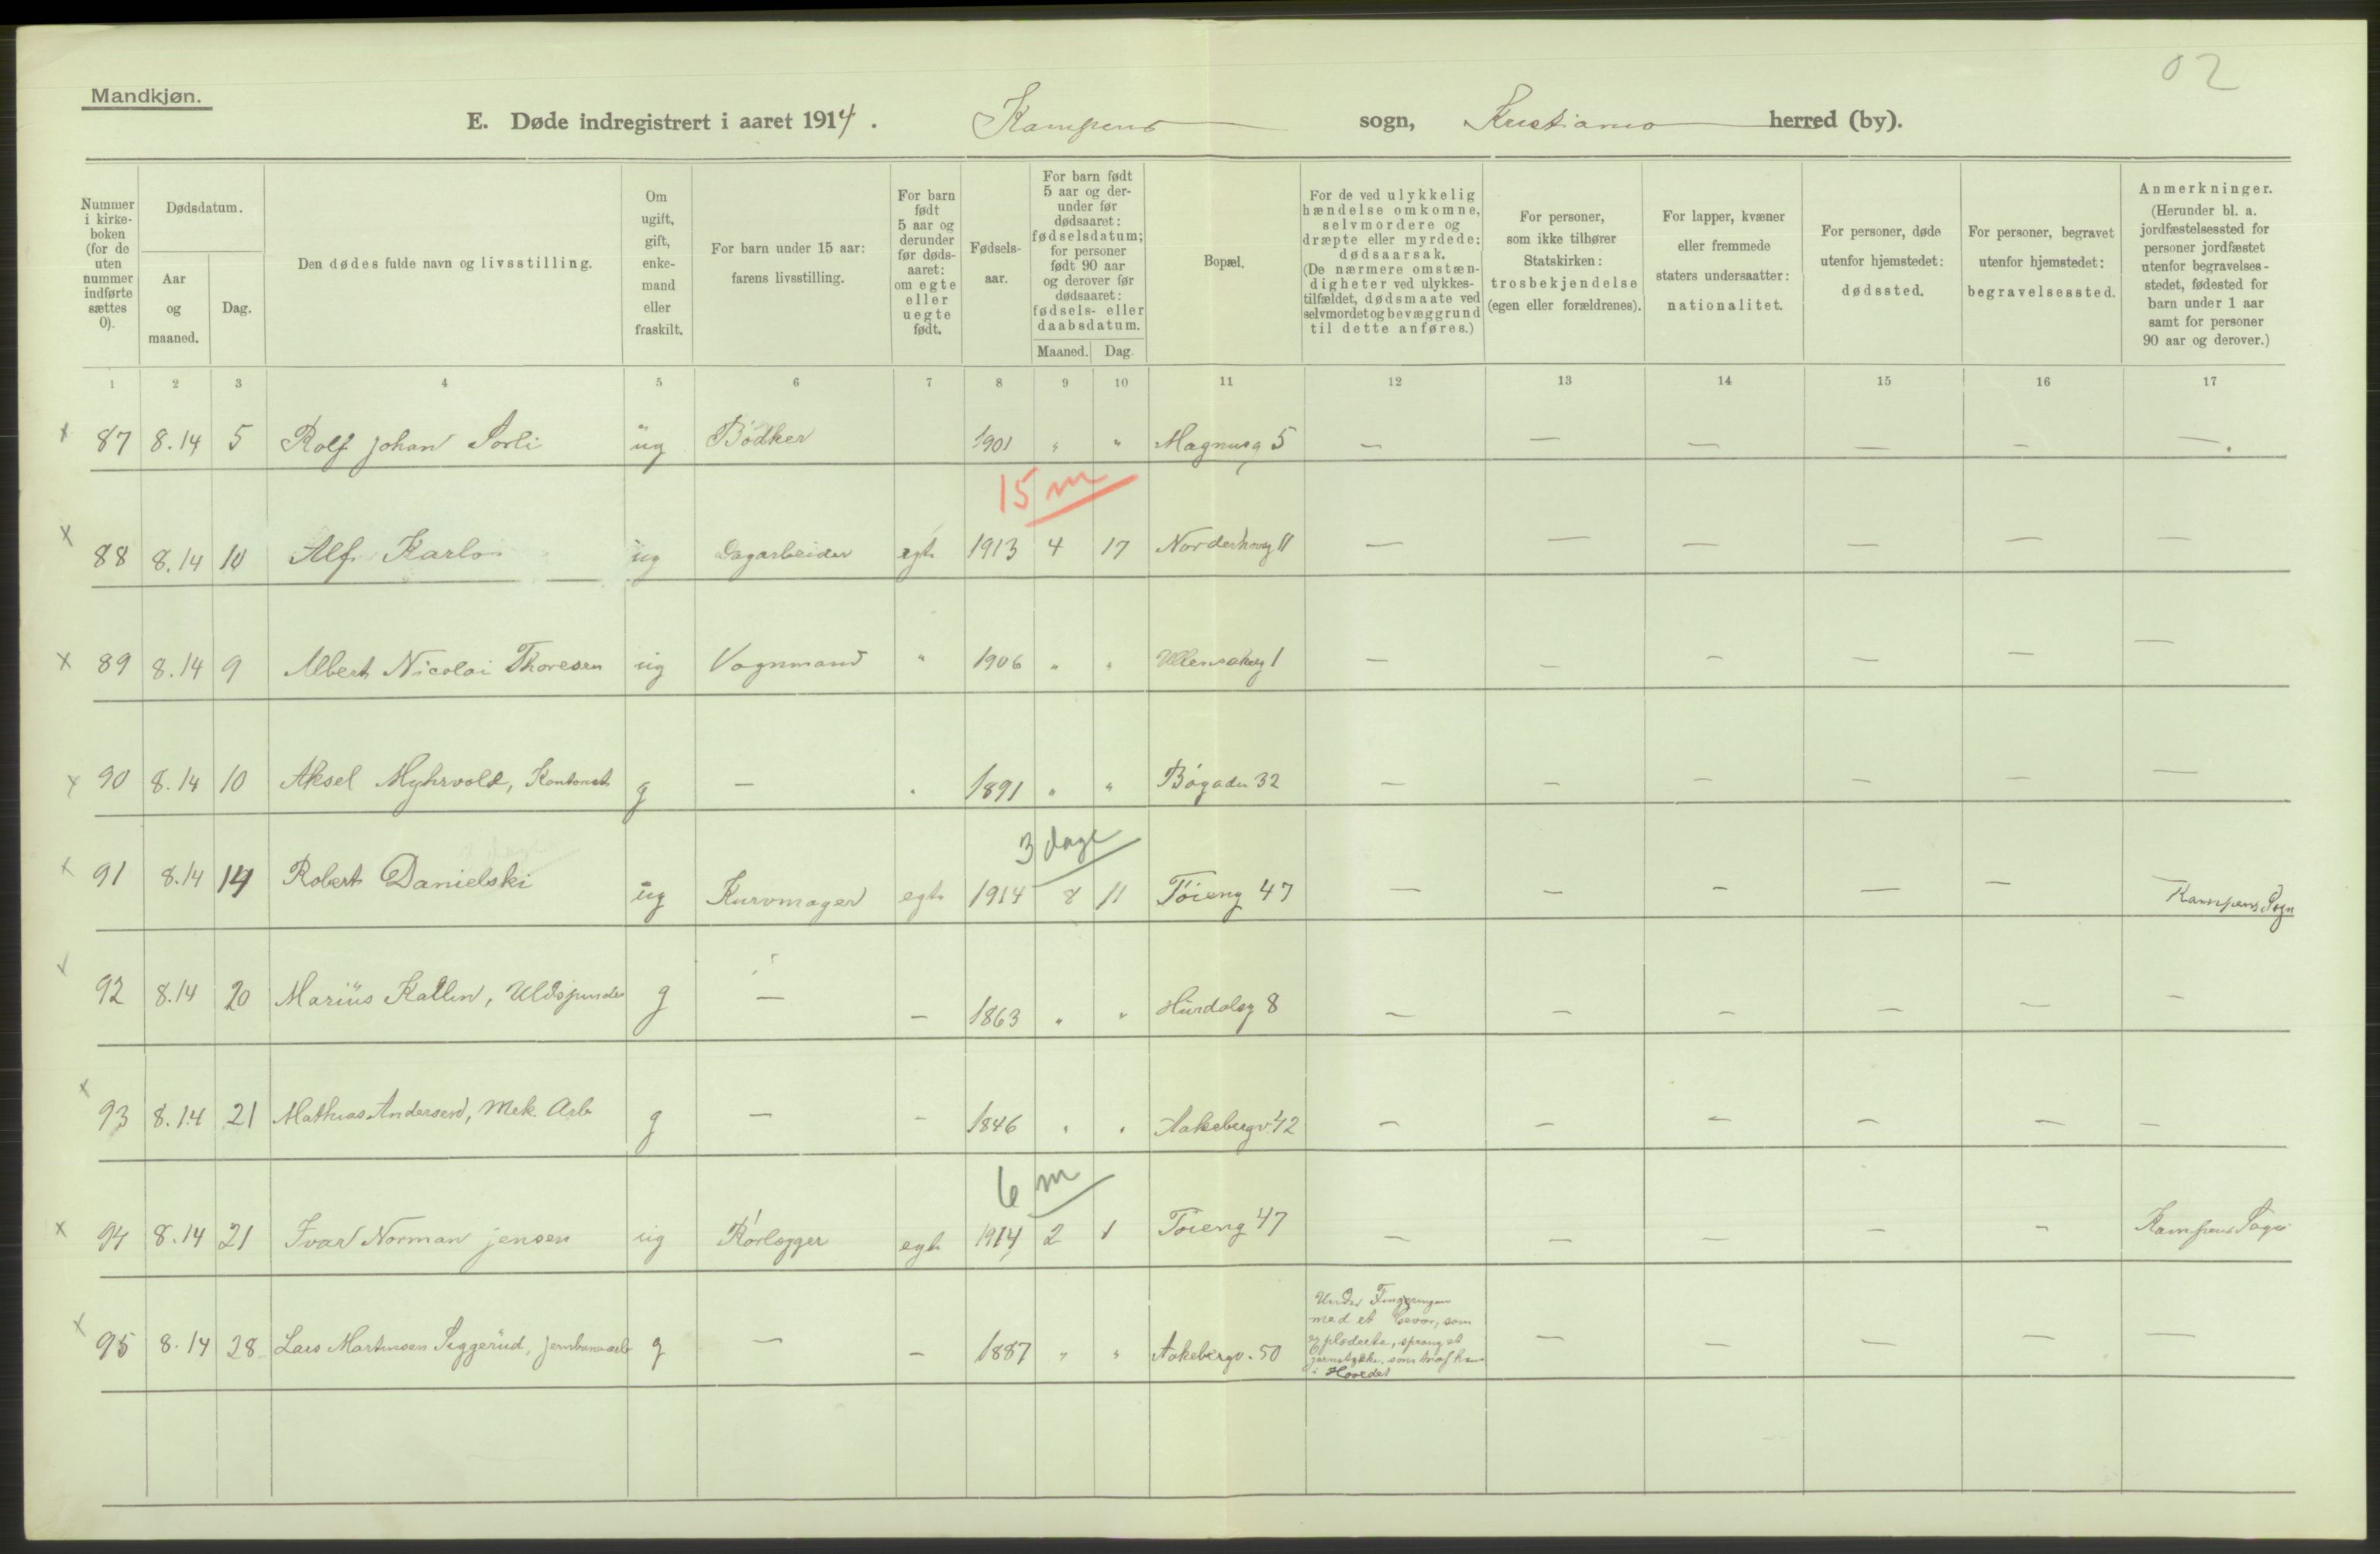 02
Mandkjøn.
E. Døde indregistrert i aaret 1914. Kampens sogn, Kristiania herred (by).
Nummer i kirke- boken (for de uten nummer indførte sættes 0).
Dødsdatum.
Aar og maaned.
Dag.
Den dødes fulde navn og livsstilling.
Om ugift, gift, enke- mand eller fraskilt.
For barn under 15 aar: farens livsstilling.
For barn født 5 aar og derunder før døds- aaret: om egte eller uegte født.
Fødsels- aar.
For barn født 5 aar og der- under før dødsaaret: fødselsdatum; for personer født 90 aar og derover før dødsaaret: fødsels- eller daabsdatum.
Maaned. Dag.
Bopæl.
For de ved ulykkelig hændelse omkomne, selvmordere og dræpte eller myrdede: dødsaarsak. (De nærmere omstæn- digheter ved ulykkes- tilfældet, dødsmaate ved selvmordet og bevæggrund til dette anføres.)
For personer, som ikke tilhører Statskirken: trosbekjendelse (egen eller forældrenes).
For lapper, kvæner eller fremmede staters undersaatter: nationalitet.
For personer, døde utenfor hjemstedet: dødssted.
For personer, begravet utenfor hjemstedet: begravelsessted.
Anmerkninger. (Herunder bl. a. jordfæstelsessted for personer jordfæstet utenfor begravelses- stedet, fødested for barn under 1 aar samt for personer 90 aar og derover.)
1 2 3 4 5 6 7 8 9 10 11 12 13 14 15 16 17
x 87 8.14 5 Rolf Johan Sorli ug Bødker 1901 " " Magnusg 5 — — — — — —.
15 m
x 88 8.14 10 Alf Karlo ug Dagarbeider egte 1913 4 17 Norderhovg 11 — — — — — —
x 89 8.14 9 Albert Nicolai Thoresen ug Vognmand " 1906 " " Ullensakerg 1 — — — — — —
x 90 8.14 10 Aksel Myhrvold, Kontorist g — " 1891 " " Bøgaden 32 — — — — — —
3 dage
x 91 8.14 14 Robert Danielski ug Kurvmager egte 1914 8 11 Tøieng 47 — — — — — — Kampens Sogn
92 8.14 20 Marius Kallin, Uldspinder g — — 1863 " " Hurdalsg 8 — — — — — —
x 93 8.14 21 Mathias Andersen, Mek. Arb g — — 1846 " " Aakebergv. 42 — — — — — —
6 m
x 94 8.14 21 Ivar Norman Jensen ug Rørlægger egte 1914 2 1 Tøieng 47 — — — — — Kampens Sogn
x 95 8.14 28 Lars Martinsen Seggerud, Jernbanearb g — — 1887 " " Aakebergv. 50 Under
med et som
exploderte, sprang et
jernstykke, som traf ham
i Hovedet — — — — —